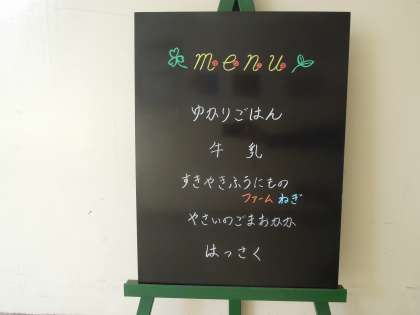 menu
ゆかりごはん
牛 乳
すきやきふうにもの
ファーム ねぎ
やさいのごまおかか
はっさく